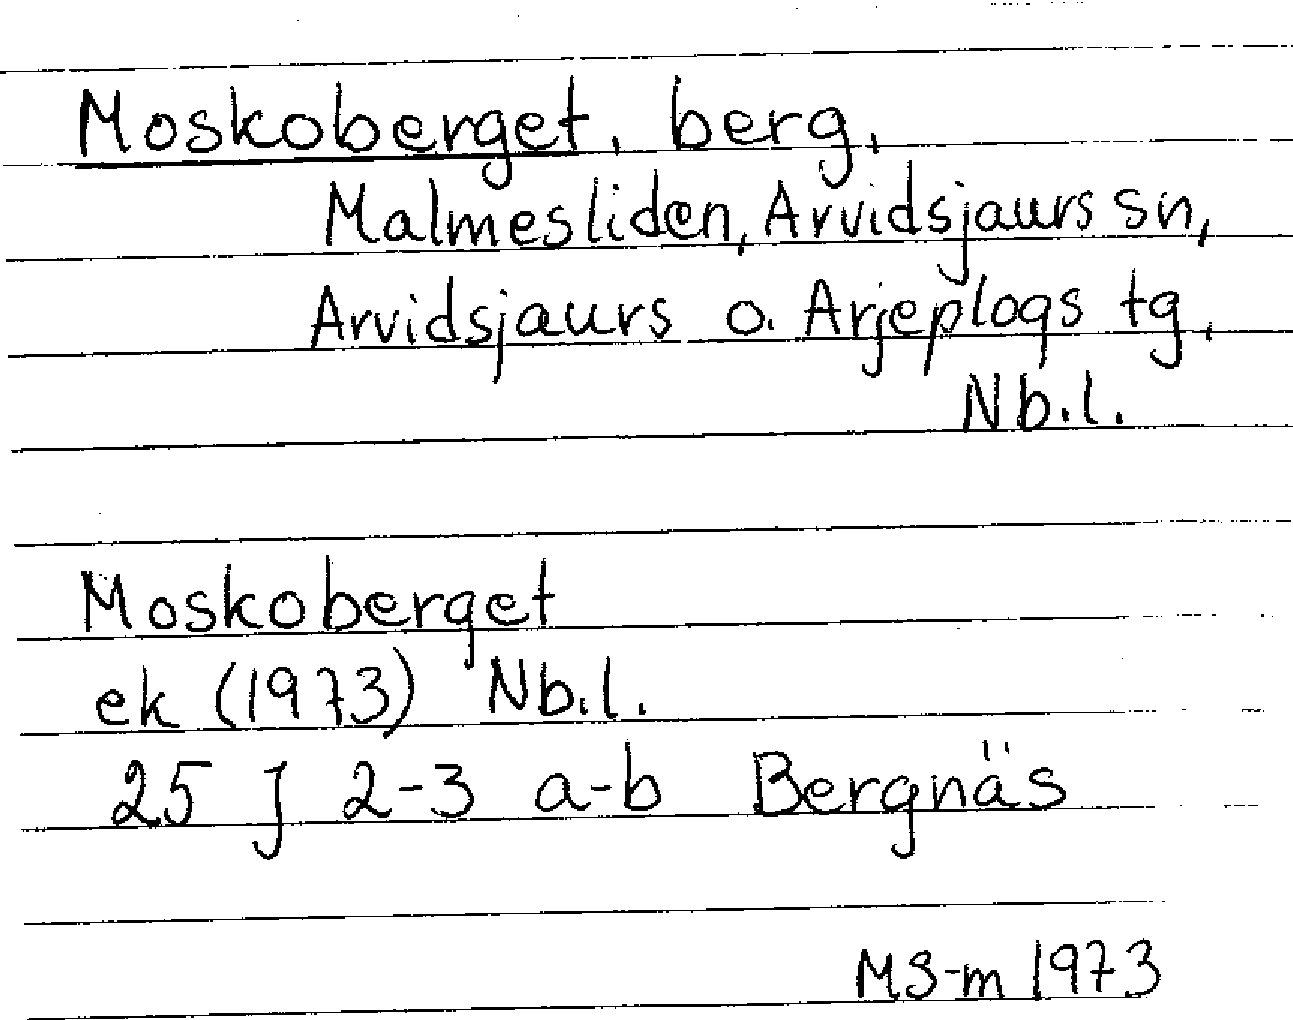 Moskoberget, berg,
Malmesliden, Arvidsjaurs sn,
Arvidsjaurs o. Arjeplogs tg,
Nb.l.
Moskoberget
ek (1973) Nb.l.
25 J 2-3 a-b Bergnäs
MS-m 1973